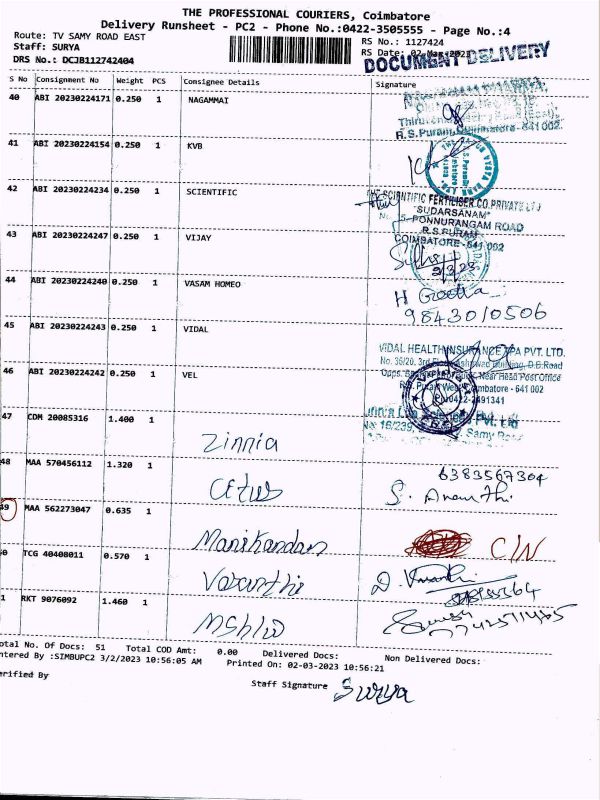 THE PROFESSIONAL COURIERS, Coimbatore
Delivery Runsheet - PC2 - Phone No.:0422-3505555 - Page No.:4
Route: TV SAMY ROAD EAST
RS No.: 1127424
Staff: SURYA
RS Date: 02-Mar-2023
DRS No.: DCJB112742404
DOCUMENT DELIVERY
S No Consignment No Weight PCS Consignee Details Signature
40 ABI 20230224171 0.250 1 NAGAMMAI
R.S.Puram, Coimbatore - 641 002.
41 ABI 20230224154 0.250 1 KVB
42 ABI 20230224234 0.250 1 SCIENTIFIC
THE SCIENTIFIC FERTILISER CO.PRIVATE LTD
"SUDARSANAM"
PONNURANGAM ROAD
R.S.PURAM
COIMBATORE - 641 002
43 ABI 20230224247 0.250 1 VIJAY
2/3/23
44 ABI 20230224240 0.250 1 VASAM HOMEO
H Geetha
9843010506
45 ABI 20230224243 0.250 1 VIDAL
VIDAL HEALTH INSURANCE TPA PVT. LTD.
No. 36/20, 3rd Building, D.B.Road
Near Head Post Office
R.S. Puram West, Coimbatore - 641 002
46 ABI 20230224242 0.250 1 VEL
47 CDM 20085316 1.400 1 Zinnia
Pvt. Ltd
No: 16/239, Samy Road
48 MAA 570456112 1.320 1 Cetus
6383567304
S. Ananthi
49 MAA 562273047 0.635 1 Manikandan C/N
0 TCG 40408011 0.570 1 Vasanthi
D. Vasanthi
1 RKT 9076092 1.460 1
otal No. Of Docs: 51 Total COD Amt: 0.00 Delivered Docs: Non Delivered Docs:
ntered By :SIMBUPC2 3/2/2023 10:56:05 AM Printed On: 02-03-2023 10:56:21
erified By
Staff Signature Surya